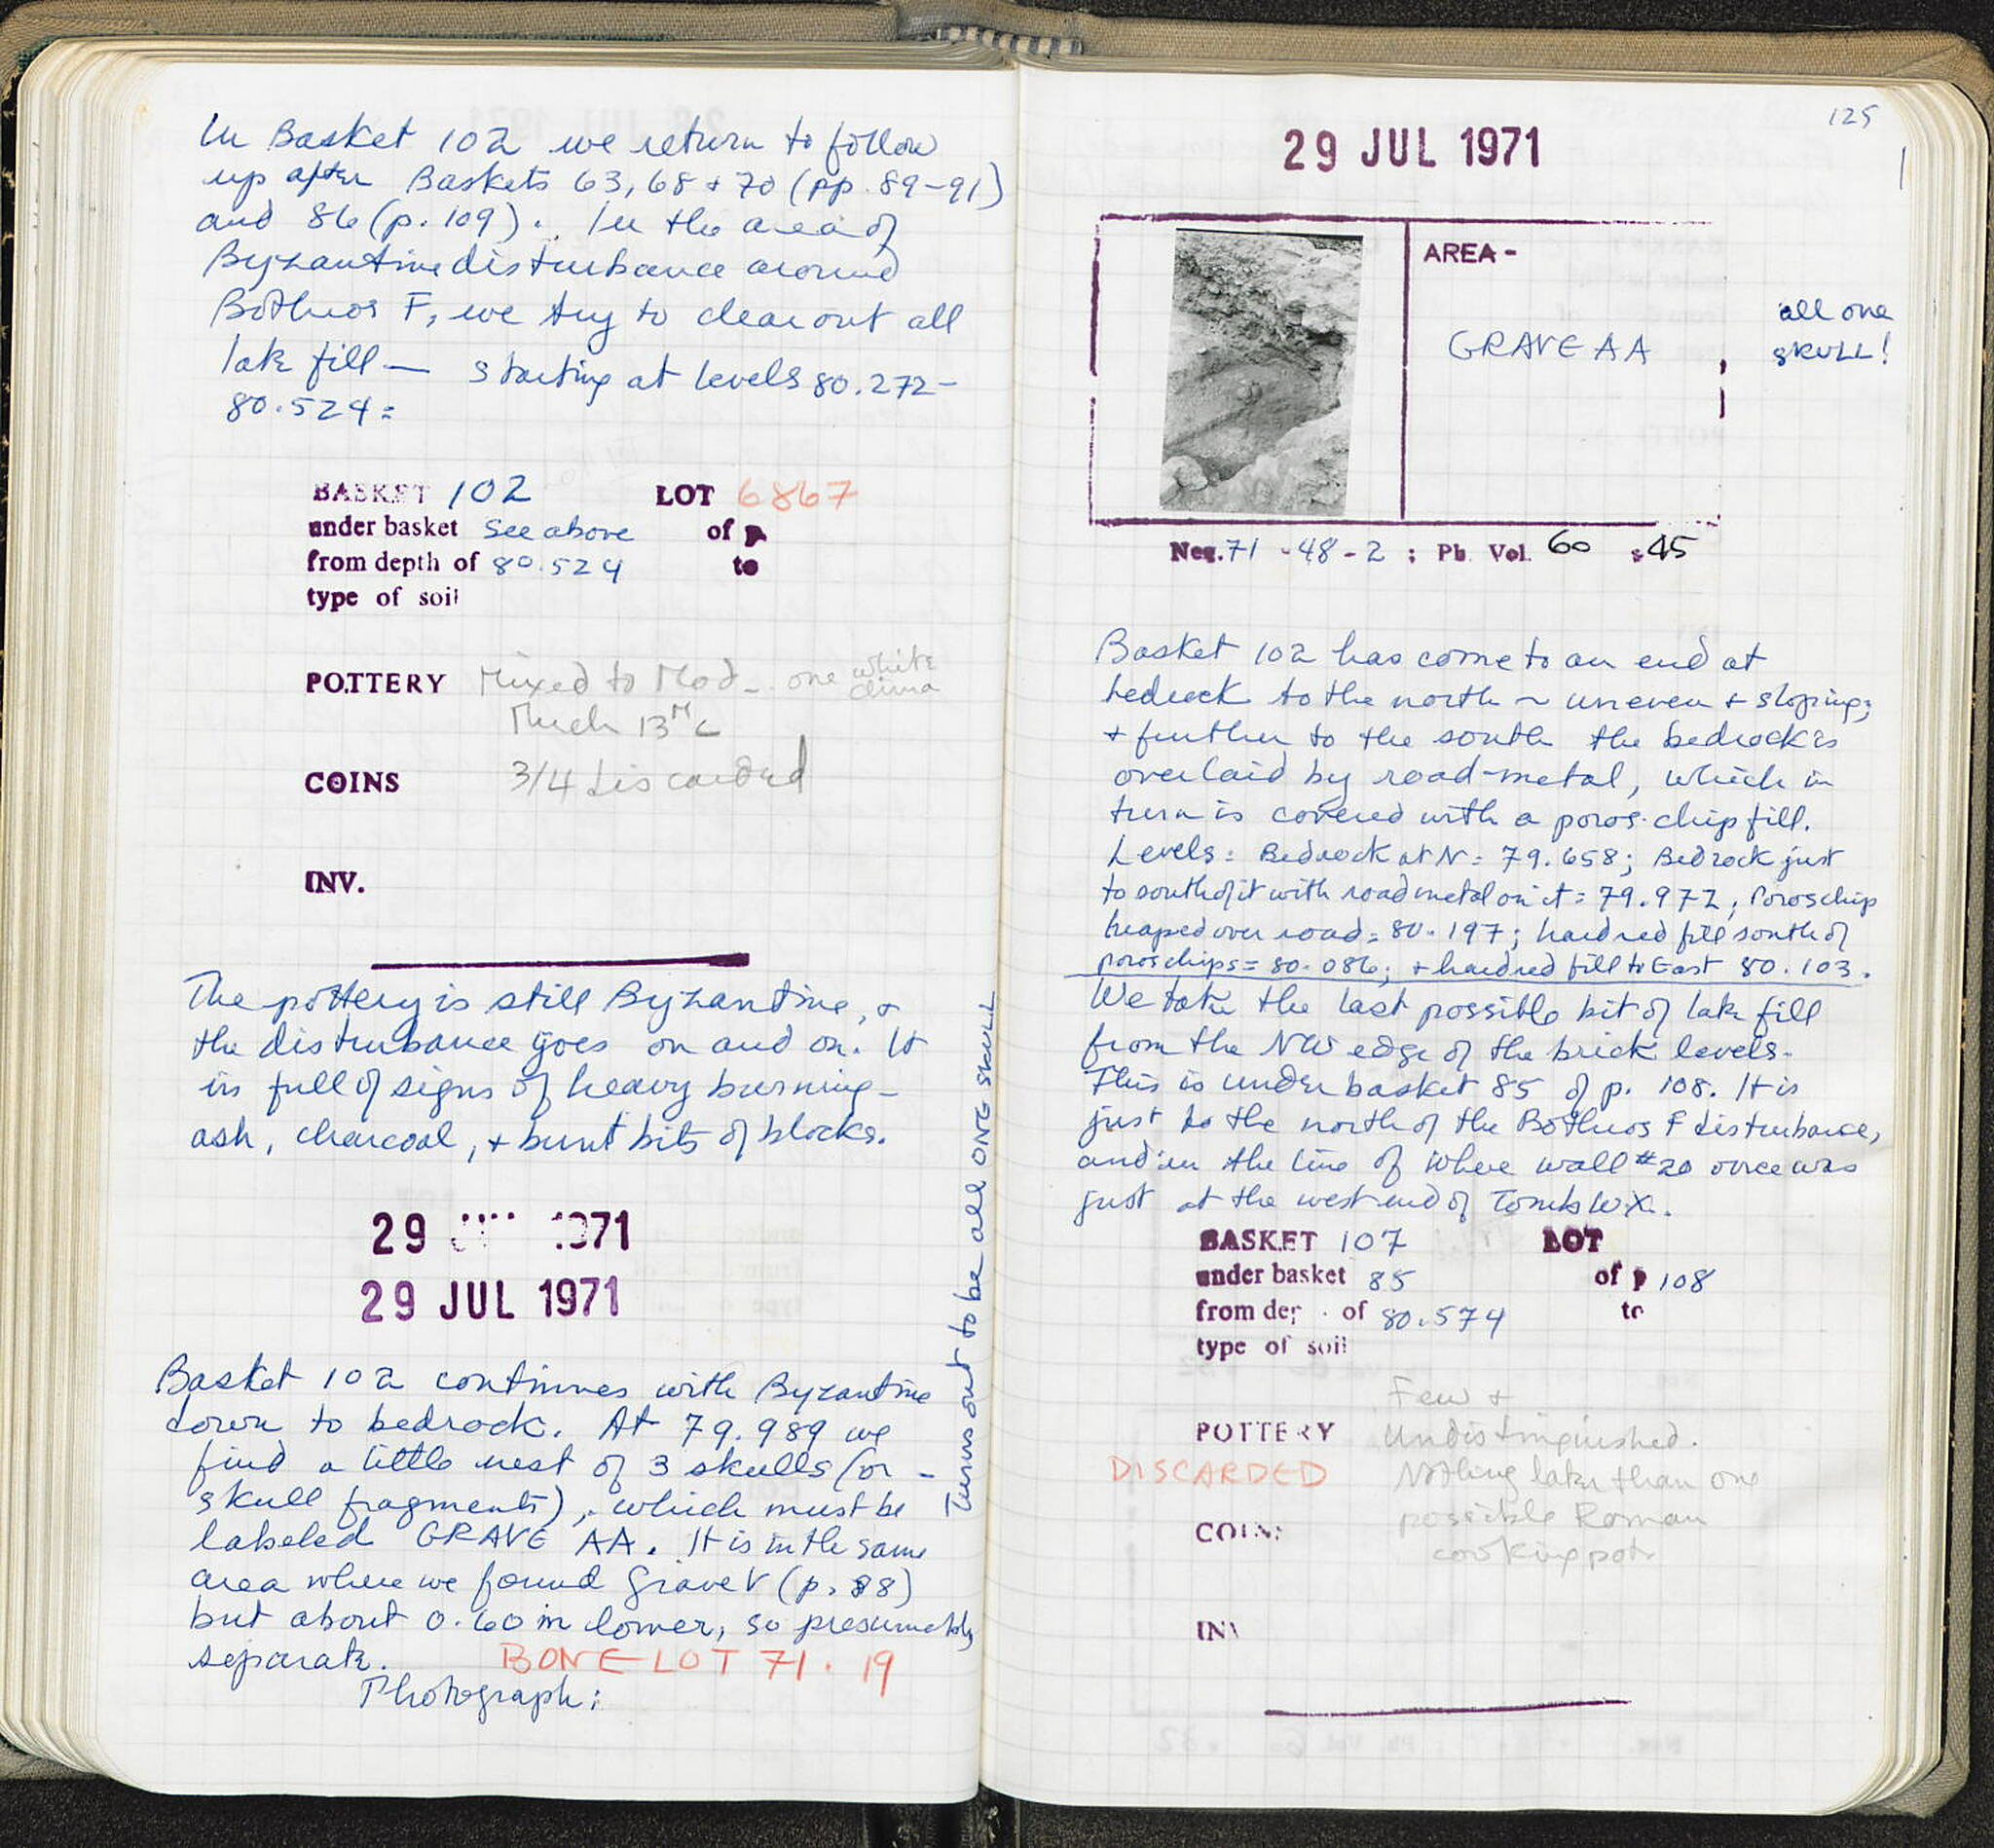 In Basket 102 we return to follow
up after Baskets 63, 68 + 70 (pp. 89-91)
and 86 (p. 109). In the area of
Byzantine disturbance around
Bothros F, we try to clear out all
late fill — starting at levels 80.272-
80.524:
BASKET 102 LOT 6867
under basket See above of p
from depth of 80.524 to
type of soil
POTTERY Mixed to Mod - one white
china
Much 13th C
COINS 3/4 discarded
INV.
The pottery is still Byzantine, +
the disturbance goes on and on. It
is full of signs of heavy burning -
ash, charcoal, + burnt bits of blocks.
29 1971
29 JUL 1971
Basket 102 continues with Byzantine
down to bedrock. At 79.989 we
find a little nest of 3 skulls (or -
skull fragments), which must be
labeled GRAVE AA. It is in the same
area where we found Grave V (p. 88)
but about 0.60 m lower, so presumably
separate. BONE LOT 71.19
Photograph:
Turns out to be all ONE SKULL
125
29 JUL 1971
AREA -
GRAVE AA
all one
SKULL!
Neg. 71 - 48 - 2 ; Ph. Vol. 60 : 45
Basket 102 has come to an end at
bedrock to the north ~ uneven + sloping;
+ further to the south the bedrock is
overlaid by road-metal, which in
turn is covered with a poros-chip fill.
Levels: Bedrock at N = 79.658; Bedrock just
to south of it with road metal on it = 79.972; Poros chip
heaped over road = 80.197; hard red fill south of
poros chips = 80.086; + hard red fill to East 80.103.
We take the last possible bit of late fill
from the NW edge of the brick levels.
This is under basket 85 of p. 108. It is
just to the north of the Bothros F disturbance,
and in the line of where wall #20 once was
just at the west end of Tombs W.X.
BASKET 107 LOT
under basket 85 of p 108
from dep of 80.574 to
type of soil
POTTERY Few +
Undistinguished.
DISCARDED Nothing later than one
possible Roman
cooking pot
COINS
INV